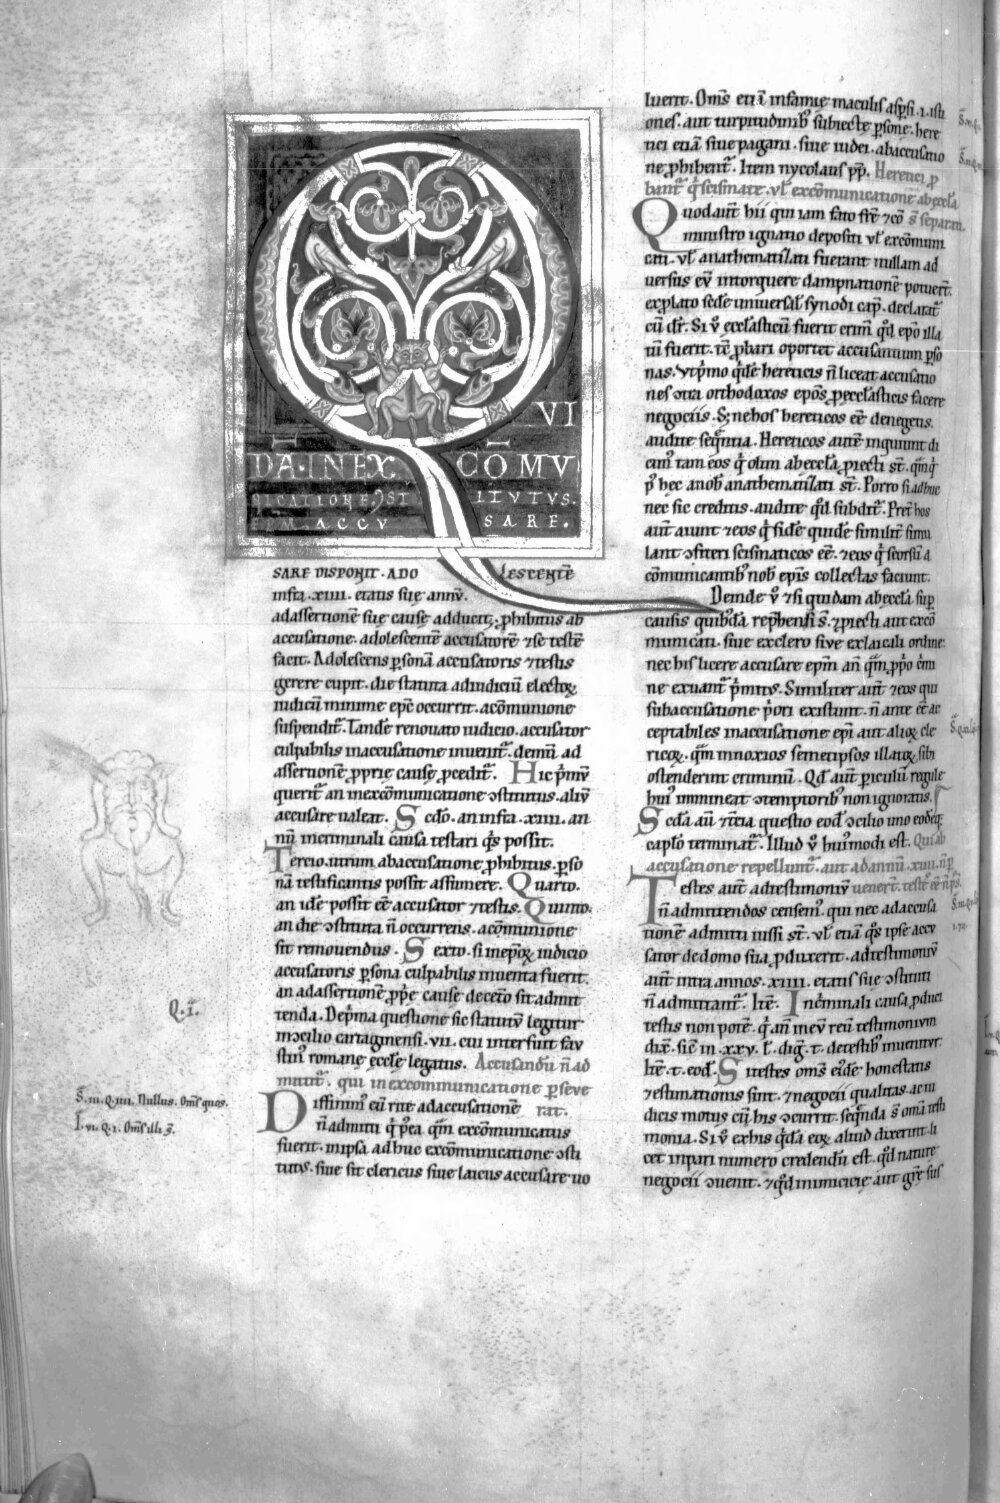 QVI
DA·IN EX COMV
NICATIONE ↄSTITVTVS.
ACCVSARE.
SARE DISPONIT. ADOLESCENTĒ
infra .xiiii. etatis sue annū.
ad assertionē sue cause adducit, ꝓhibitus ab
accusatione. adolescentē accusatorē ⁊ se testē
facit. Adolescens ꝑsonā accusatoris ⁊ testis
gerere cupit. die statuta ad iudiciū electoꝝ
iudiciū minime epc̄ occurrit. a cōmunione
suspendit᷑. Tandē renouato iudicio. accusator
culpabilis in accusatione inuenit᷑. demū ad
assertionē ꝓprie cause ꝓcedit᷑. Hic p͛mū
querit᷑ an in excōmunicatione ↄstitutus. aliū
accusare ualeat. Sc̄do. an infra .xiiii. an
nū in criminali causa testari q͛s possit.
Tercio. utrum ab accusatione ꝓhibitus. ꝑso
nā testificantis possit assumere. Quarto.
an idē possit eē accusator ⁊ testis. Quinto.
an die ↄstituta n̄ occurrens. a cōmunione
sit remouendus. Sexto. si in ep͛oꝝ iudicio
accusatoris ꝑsona culpabilis inuenta fuerit.
an ad assertionē ꝓp͛e cause de cet̄o sit admit
tenda. De p͛ma questione sic statutū legitur
in ↄcilio cartaginensi .vii. cui interfuit fau
stin᷒ romane eccl̄e legatus. Accusandū n̄ ad
mittit᷑. qui in excommunicatione ꝑseve
rat.
Diffinim᷒ eū rite ad accusationē
n̄ admitti q͛ p᷒ea q᷑m excōmunicatus
fuerit. in ipsa adhuc excōmunicatione ↄsti
tutus. siue sit clericus siue laicus accusare uo
luerit. Om̄s etiā infamie maculis asꝑsi .i. isti
ones. aut turpitudinib᷒ subiecte ꝑsone. here
tici etiā siue pagani. siue iudei. ab accusatio
ne ꝓhibent᷑. Item nycolaus pp̄. Heretici ꝓ
bant᷑ q͛ scismate. vl̄ excōmunicatione ab eccl̄a
s̄ separati.
Quod aut̄ hii qui iam fato fr̄e ⁊ cō
ministro ignatio depositi vl̄ excōmuni
cati. vl̄ anathematizati fuerant nullam ad
uersus eū intorquere dampnationē potuerт̄.
ex p͛lato sede uniuersal̄ synodi cap̄. declarat᷑
cū dr̄. Si v̊ eccl̄asticū fuerit crim̄ q᷑d ep̄o illa
tū fuerit. tc̄ ꝓbari oportet accusantium ꝑso
nas. Vt p͛mo q͛dē hereticis n̄ liceat accusatio
nes ↄtra orthodoxos ep̄os ꝓ eccl̄asticis facere
negociis. S; ne hos hereticos eē denegetis.
audite seq̄ntia. Hereticos autē inquiunt di
cim᷒ tam eos q͛ olim ab eccl̄a ꝓiecti st̄. quāq͛
p᷒ hec a nob᷒ anathematizati st̄. Porro si adhuc
nec sic creditis. audite q᷑d subdit᷑. Pret̄ hos
aut̄ aiunt ⁊ eos q͛ fidē quidē simulant̄ sanā
ↄfiteri scismaticos eē. ⁊ eos q͛ seorsū a
cōmunicantib᷒ nob᷒ ep̄is collectas faciunt.
Deinde v̊ ⁊ si quidam ab eccl̄a sup̄
causis quib᷒dā rep̄hensi s̄. ⁊ ꝓiecti aut excō
municati. siue ex clero siue ex laicali ordine:
nec his licere accusare ep̄m an̄ q᷑m ꝓp͛o c͛mi
ne exuant᷑ p͛mitus. Similiter aut̄ ⁊ eos qui
sub accusatione p͛ori existunt. n̄ ante eē ac
ceptabiles in accusatione ep̄i aut alioꝝ cle
ricoꝝ. q᷑m innoxios semetipsos illatoꝝ sibi
ostenderint criminū. Qd̄ aut̄ ꝑiculū regule
hui᷒ immineat ↄtemptorib᷒ non ignoratis.
Sc̄da aū ⁊ t̄cia questio eod̄ ↄcilio uno eodēq;
cap̄lo terminat᷑. Illud v̊ hui᷒modi est. Qui ab
accusatione repellunt᷑. aut ad annū .xiiii. n̄ ꝑ
uenerт̄. testes eē n̄ pn̄t.
Testes aut̄ ad testimoniū
n̄ admittendos censem᷒. qui nec ad accusa
tionē admitti iussi st̄. vl̄ etiā q᷑s ipse accu
sator de domo sua ꝓduxerit. ad testimoniū
aut̄ intra annos .xiiii. etatis sue ↄstituti
n̄ admittant᷑. Itē. In c͛minali causa ꝓduci
testis non potē. q͛ an̄ in eū reū testimonium
dix̄. sic̄ in .xxv. l̄. diḡ. t̄. de testib᷒ inuenitur:
Itē. t. eod̄. Si testes om̄s eiᵈdē honestatis
⁊ estimationis sint. ⁊ negocii qualitas ac iu
dicis motus cū his ↄcurrit. seq̄nda s̄ om̄ia testi
monia. Si v̊ ex his q͛dā eoꝝ aliud dixerint. li
cet inpari numero credendū est. q᷑d nature
negocii ↄuenit. ⁊ q᷑d inimicicie aut gr̄e sus
Q. ī.
S̄. iii. Q. iiii. Nullus. Om̄s quos.
I. vi. Q. i. Om̄s illi ꝫ.